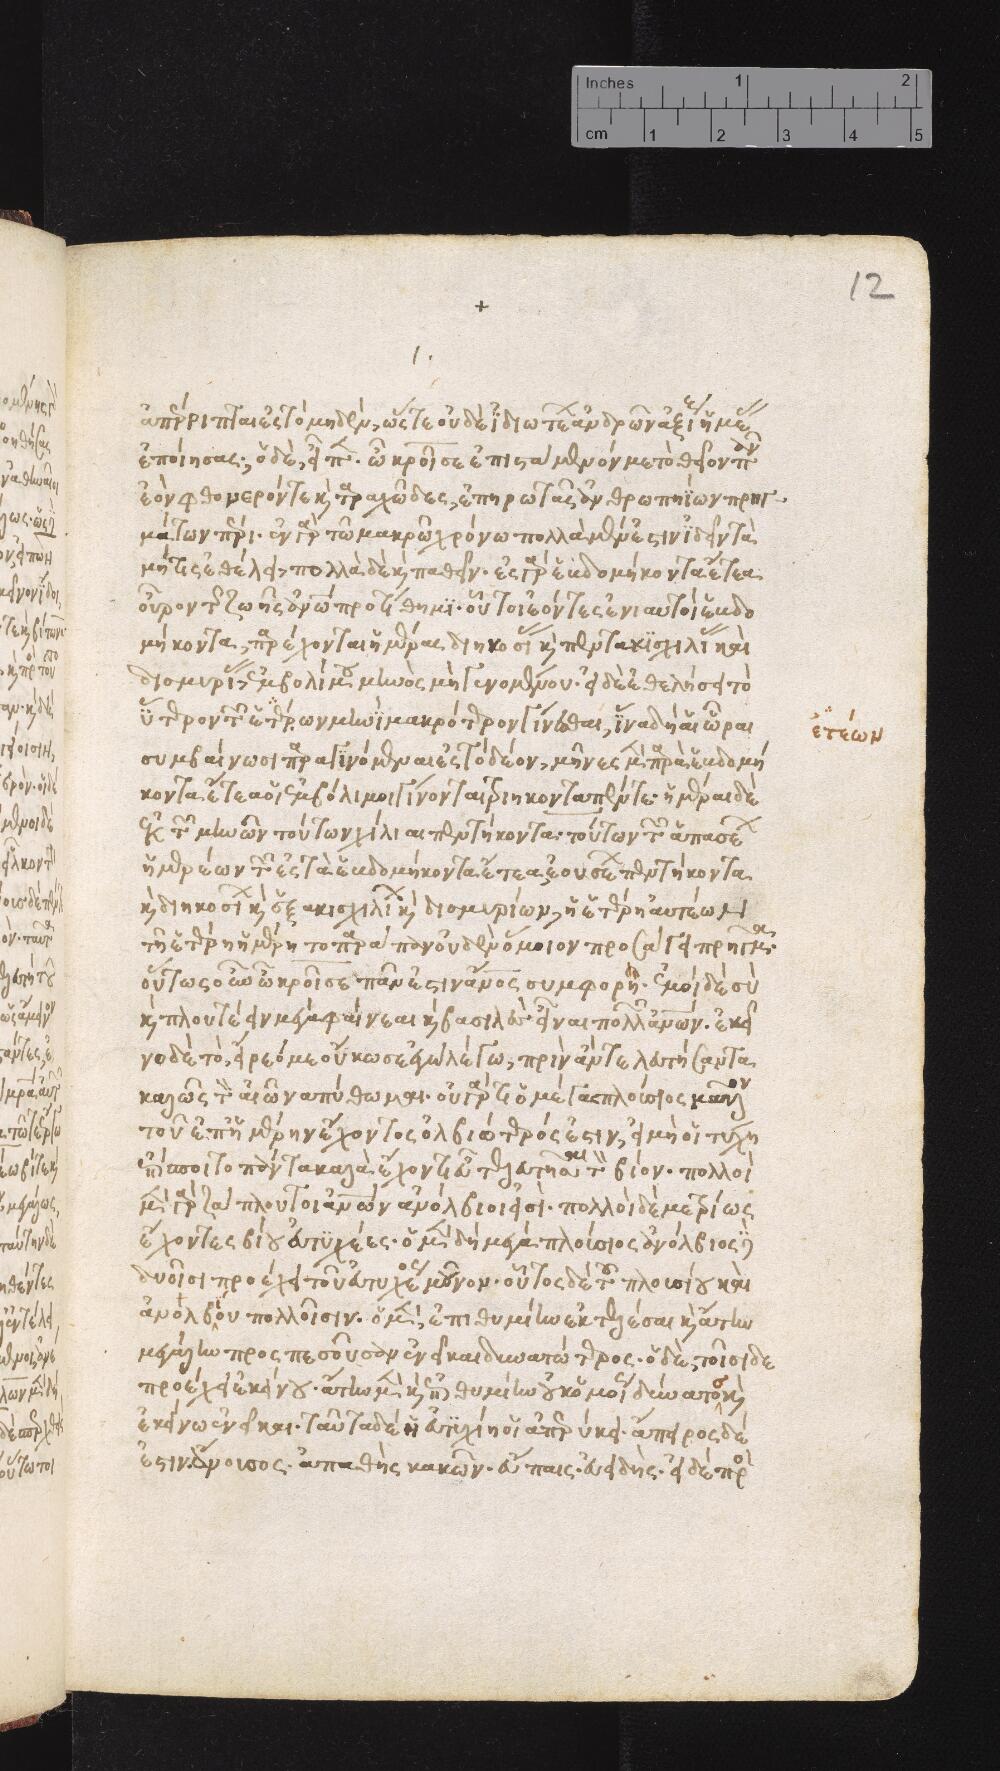 Inches 1 2
cm 1 2 3 4 5
12
+
ἀπέρριπται ἐς τὸ μηδὲν, ὥστε οὐδὲ ἰδιωτέων ἀνδρῶν ἀξίους ἡμέας
ἐποίησας; ὁ δὲ, εἶπε. ὦ κροῖσε ἐπιστάμενόν με τὸ θεῖον πᾶν
ἐὸν φθονερόν τε καὶ ταραχῶδες, ἐπειρωτᾶις ἀνθρωπηΐων πρηγ-
μάτων πέρι. ἐν γὰρ τῶ μακρῶ χρόνω πολλὰ μέν ἐστιν ἰδεῖν τὰ
μή τις ἐθέλει, πολλὰ δὲ καὶ παθεῖν. ἐς γὰρ ἑβδομήκοντα ἔτεα
οὖρον τῆς ζωῆς ἀνθρώπω προτίθημι. οὗτοι ἐόντες ἐνιαυτοὶ ἑβδο
μήκοντα, παρέχονται ἡμέρας διηκοσίας καὶ πεντακισχιλίας καὶ
δισμυρίας, ἐμβολίμου μηνὸς μὴ γινομένου. εἰ δὲ ἐθελήσει τὸ
ὕτερον τῶν ἐτέρων μηνὶ μακρότερον γίνεσθαι, ἵνα δὴ αἱ ὧραι
ἐτέων
συμβαίνωσι παραγινόμεναι ἐς τὸ δέον, μῆνες μὲν παρὰ ἑβδομή
κοντα ἔτεα οἱ ἐμβόλιμοι γίνονται τριηκονταπέντε. ἡμέραι δὲ
ἐκ τῶν μηνῶν τούτων χίλιαι πεντήκοντα. τούτων τῶν ἁπασέων
ἡμερέων τῶν ἐς τὰ ἑβδομήκοντα ἔτεα, ἐουσέων πεντήκοντα
καὶ διηκοσίων καὶ ἑξακισχιλίων καὶ δισμυρίων, ἡ ἑτέρη αὐτέων
τῆ ἑτέρη ἡμέρη τοπαράπαν οὐδὲν ὅμοιον προσάγει πρῆγμα.
οὕτως ὦν ὦ κροῖσε πᾶν ἐστιν ἄνθρωπος συμφορή. ἐμοὶ δὲ σὺ
καὶ πλουτέειν μέγα φαίνεαι καὶ βασιλεὺς εἶναι πολλῶν ἀνθρώπων. ἐκεῖ
νο δὲ τὸ, εἴρεό με οὔκω σε ἐγὼ λέγω, πρὶν ἄν τελευτήσαντα
καλῶς τὸν αἰῶνα πύθωμαι. οὐ γάρ τι ὁ μέγας πλούσιος μᾶλλον
τοῦ ἐπ' ἡμέρην ἔχοντος ὀλβιώτερός ἐστιν, εἰ μή οἱ τύχη
ἐπίσποιτο πάντα καλὰ ἔχοντι εὖ τελευτῆσαι τὸν βίον. πολλοὶ
μὲν γὰρ ζάπλουτοι ἀνθρώπων ἀνόλβιοι εἰσί. πολλοὶ δὲ μετρίως
ἔχοντες βίου εὐτυχέες. ὁ μὲν δὴ μέγα πλούσιος ἀνόλβιος δὲ
δυοῖσι προέχει τοῦ εὐτυχέος μοῦνον. οὗτος δὲ τοῦ πλουσίου καὶ
ἀνόλβου πολλοῖσιν. ὁ μὲν, ἐπιθυμίην ἐκτελέσαι καὶ ἄτην
μεγάλην προσπεσοῦσαν ἐνεῖκαι δυνατώτερος. ὁ δὲ, τοῖσιδε
προέχει ἐκείνου. ἄτην μὲν καὶ ἐπιθυμίην οὐκ ὁμοίως δυνατὸς
ἐκείνω ἐνεῖκαι. ταῦτα δὲ ἡ εὐτυχίη οἱ ἀπερύκει. ἄπειρος δέ
ἐστιν. ἄνουσος. ἀπαθὴς κακῶν. εὔπαις. εὐειδής. εἰ δὲ πρὸς